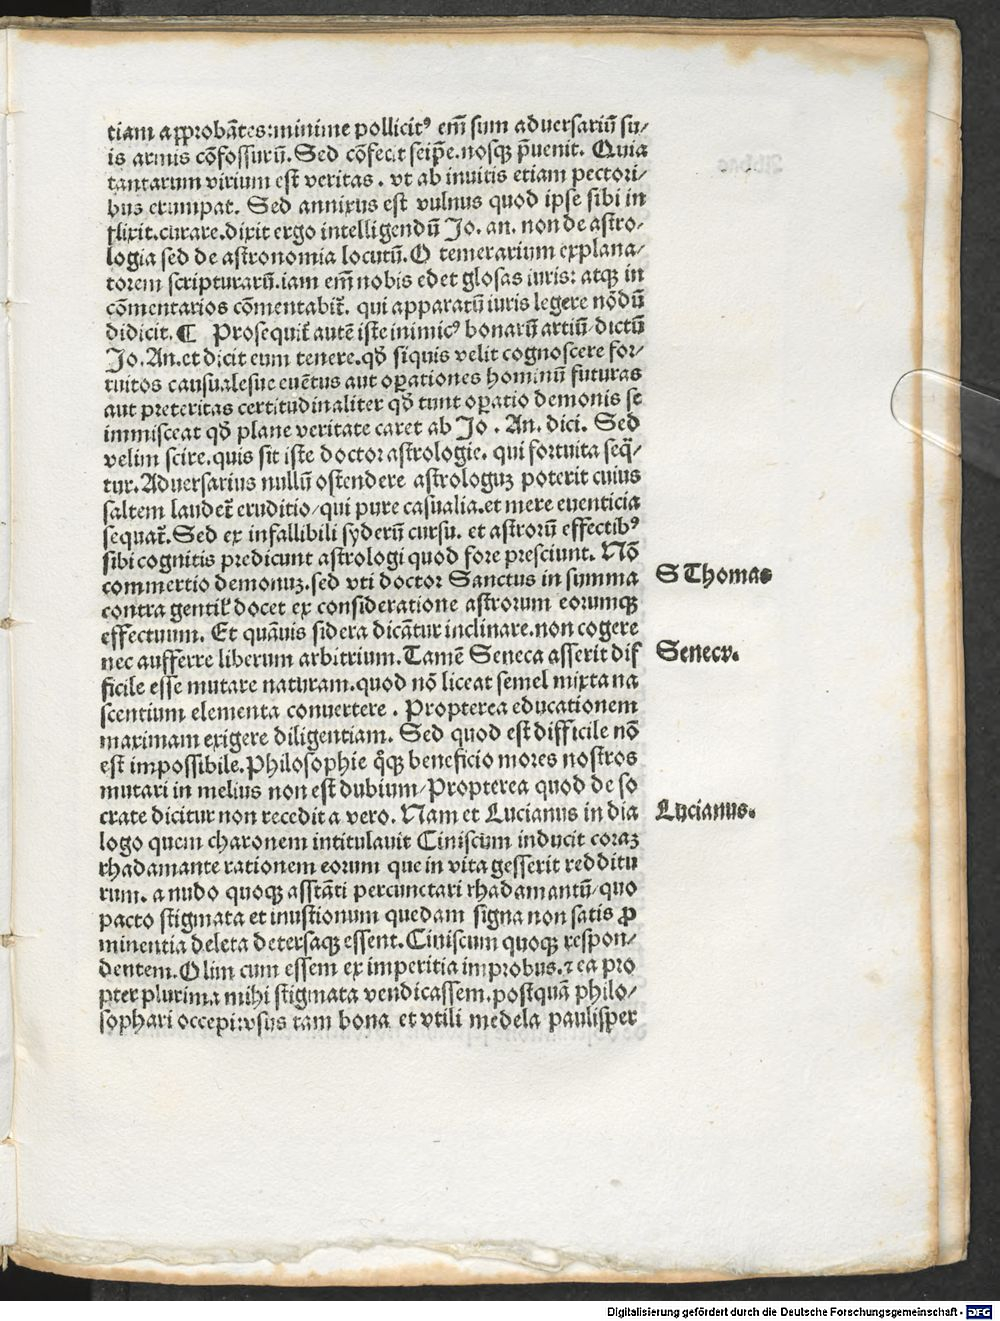 tiam aꝓꝓrobãtes:minime pollicitꝰ em̃ sum aduersariũ su/
is armis cõfossurũ. Sed cõfecit seip̃e.nosqꝫ p̃uenit. Quia
tantarum virium est veritas . vt ab inuitis etiam pectori/
bus erumpat. Sed annixus est vulnus quod ipse sibi in
flixit.curare.dixit ergo intelligendũ Jo. an. non de astro-
logia sed de astronomia locutũ. O temerarium explana/
torem scripturarũ.iam em̃ nobis edet glosas iuris: atqꝫ in
cõmentarios cõmentabit̃. qui apparatũ iuris legere nõdũ
didicit. ¶ Prosequit̃ autẽ iste inimicꝰ bonarũ artiũ/dictũ
Jo. An.et dicit eum tenere.qđ siquis velit cognoscere for/
tuitos causualesue euẽtus aut oꝑationes hominũ futuras
aut preteritas certitudinaliter qđ tunt oꝑatio demonis se
immisceat qđ plane veritate caret ab Jo . An. dici. Sed
velim scire.quis sit iste doctor astrologie. qui fortuita seq̃/
tur. Aduersarius nullũ ostendere astrologuꝫ poterit cuius
saltem laudet̃ eruditio/qui pure casualia.et mere euenticia
sequat̃. Sed ex infallibili syderũ cursu. et astrorũ effectibꝰ
sibi cognitis predicunt astrologi quod fore presciunt. Nõ
commertio demonuꝫ.sed vti doctor Sanctus in summa
contra gentil' docet ex consideratione astrorum eorumqꝫ
effectuum. Et quãuis sidera dicãtur inclinare.non cogere
nec aufferre liberum arbitrium. Tamẽ Seneca asserit dif
ficile esse mutare naturam.quod nõ liceat semel mixta na
scentium elementa conuertere . Propterea educationem
maximam exigere diligentiam. Sed quod est difficile nõ
est impossibile. Philosophie qͦqꝫ beneficio mores nostros
mutari in melius non est dubium/Propterea quod de so
crate dicitur non recedit a vero. Nam et Lucianus in dia
logo quem charonem intitulauit Ciniscum inducit coraꝫ
rhadamante rationem eorum que in vita gesserit redditu
rum. a nudo quoqꝫ asstãti percunctari rhadamantũ/quo
pacto stigmata et inustionum quedam signa non satis ꝓ
minentia deleta detersaqꝫ essent. Ciniscum quoqꝫ respon/
dentem. Olim cum essem ex imperitia improbus.⁊ ea pro
pter plurima mihi stigmata vendicassem.postquã philo/
sophari occepi:vsus tam bona et vtili medela paulisper
S Thomas
Seneca.
Lucianus.
Digitalisierung gefördert durch die Deutsche Forschungsgemeinschaft - DFG